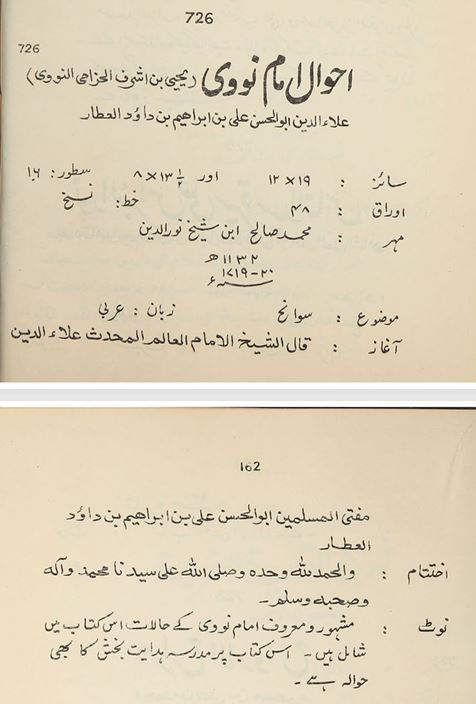 726
726
احوال امام نووی (یحیی بن اشرف الحزامی النووی)
علاء الدین ابوالحسن علی بن ابراھیم بن داؤد العطار
سائز : ۱۹ × ۱۲ اور ۱۳ ۱/۲ × ۸ سطور: ۱۶
اوراق : ۴۸ خط: نسخ
مہر : محمد صالح ابن شیخ نورالدین
۱۱۳۲ھ
۲۰-۱۷۱۹ء
موضوع : سوانح زبان : عربی
آغاز : قال الشیخ الامام العالم المحدث علاء الدین
162
مفتی المسلمین ابوالحسن علی بن ابراھیم بن داؤد
العطار
اختتام : والحمدللہ وحدہ وصلی اللہ علی سیدنا محمد وآلہ
وصحبہ وسلم۔
نوٹ : مشہور و معروف امام نووی کے حالات اس کتاب میں
شامل ہیں۔ اس کتاب پر مدرسہ ہدایت بخش کا بھی
حوالہ ہے۔